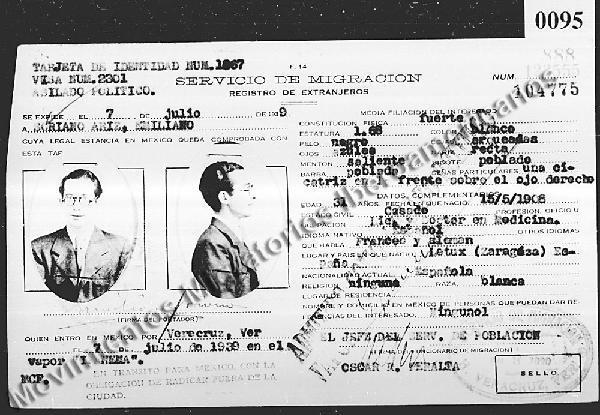 0095
TARJETA DE IDENTIDAD NUM. 1867
F. 14
VISA NUM. 2301
ASILADO POLITICO.
SERVICIO DE MIGRACION
REGISTRO DE EXTRANJEROS
NUM.
104775
SE EXPIDE EL 7 DE julio DE 1939
A SORIANO EMILIANO
CUYA LEGAL ESTANCIA EN MEXICO QUEDA COMPROBADA CON
ESTA TAR
MEDIA FILIACION DEL INTERESADO
CONSTITUCION FISICA fuerte
ESTATURA 1.68 COLOR blanco
PELO negro
OJOS
MENTON saliente BIGOTE poblado
BARBA poblado SEÑAS PARTICULARES una ci-
catriz en la frente sobre el ojo derecho
DATOS COMPLEMENTARIOS
EDAD 31 AÑOS. FECHA DE NACION 15/5/1908
ESTADO CIVIL Casado PROFESION, OFICIO U
OCUPACION Lic. Doctor en Medicina.
IDIOMA NATIVO Español OTROS IDIOMAS
QUE HABLA Frances y aleman
LUGAR Y PAIS EN QUE NACIO (Zaragoza) Es-
paña
NACIONALIDAD ACTUAL Española
RELIGION ninguna RAZA blanca
LUGAR DE RESIDENCIA
NOMBRE Y DOMICILIO EN MEXICO DE PERSONAS QUE PUEDAN DAR RE-
FERENCIAS DEL INTERESADO. Ninguno
(FIRMA DEL PORTADOR)
QUIEN ENTRO EN MEXICO POR Veracruz, Ver
EL 7 DE julio de 1939 en el
vapor
MCF.
EN TRANSITO PARA MEXICO, CON LA
OBLIGACION DE RADICAR FUERA DE LA
CIUDAD.
EL JEFE DEL SERV. DE POBLACION
(FIRMA DEL FUNCIONARIO DE MIGRACION)
OSCAR R. PERALTA
SELLO
VERACRUZ, VER.
Movimientos Migratorios Iberoamericanos